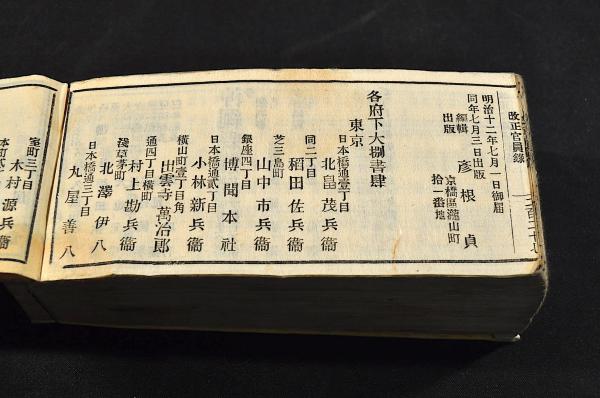 改正官員録
明治十二年七月一日御届
同年七月三日出版
編輯
出版
彦根貞
京橋區瀧山町
拾一番地
各府下大捌書肆
東京
日本橋通壹丁目
北畠茂兵衞
同二丁目
稻田佐兵衞
芝三島町
山中市兵衞
銀座四丁目
博聞本社
日本橋通貳丁目
小林新兵衞
横山町壹丁目角
出雲寺萬治郎
通四丁目横町
村上勘兵衞
淺草茅町
北澤伊八
日本橋通三丁目
丸屋善八
室町三丁目
木村源兵衞